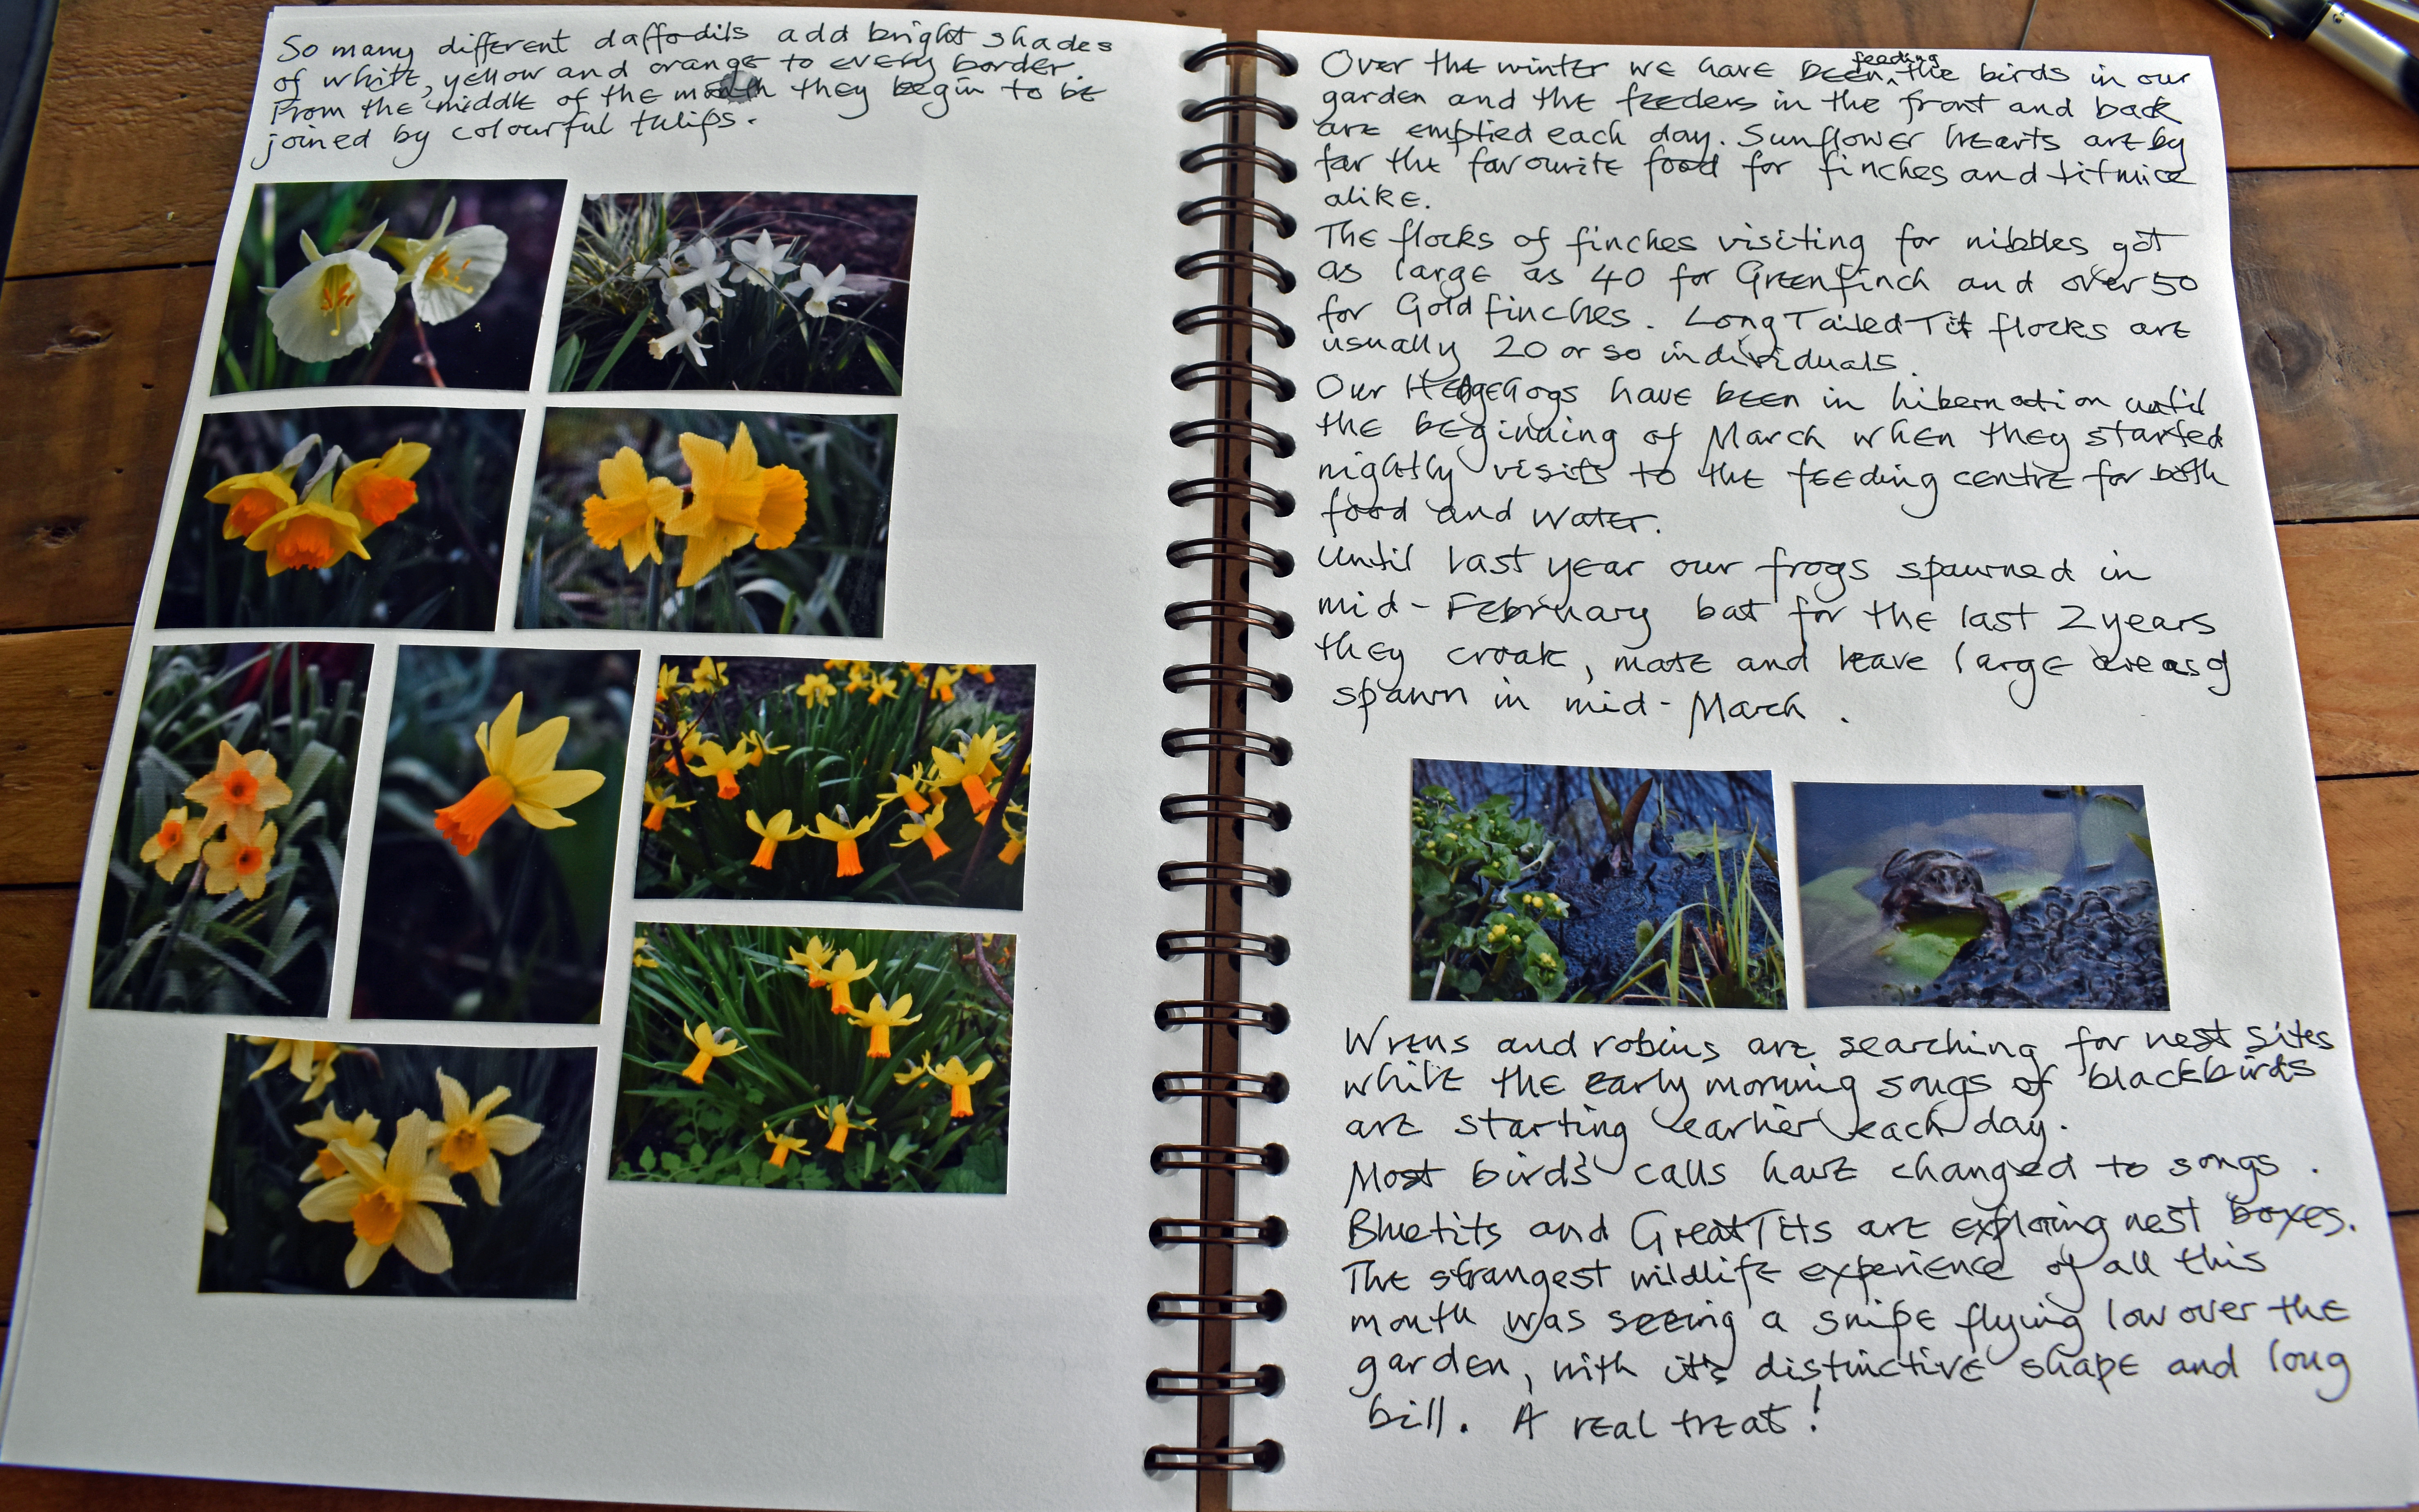 So many different daffodils add bright shades
of white, yellow and orange to every border.
From the middle of the month they begin to be
joined by colourful tulips.
Over the winter we have been feeding the birds in our
garden and the feeders in the front and back
are emptied each day. Sunflower hearts are by
far the favourite food for finches and titmice
alike.
The flocks of finches visiting for nibbles got
as large as 40 for Greenfinch and over 50
for Goldfinches. Long Tailed Tit flocks are
usually 20 or so individuals.
Our Hedgehogs have been in hibernation until
the beginning of March when they started
nightly visits to the feeding centre for both
food and water.
Until last year our frogs spawned in
mid-February bat for the last 2 years
they croak, mate and leave large areas of
spawn in mid-March.
Wrens and robins are searching for nest sites
while the early morning songs of blackbirds
are starting earlier each day.
Most bird's calls have changed to songs.
Bluetits and Great Tits are exploring nest boxes.
The strangest wildlife experience of all this
month was seeing a snipe flying low over the
garden, with it's distinctive shape and long
bill. A real treat!